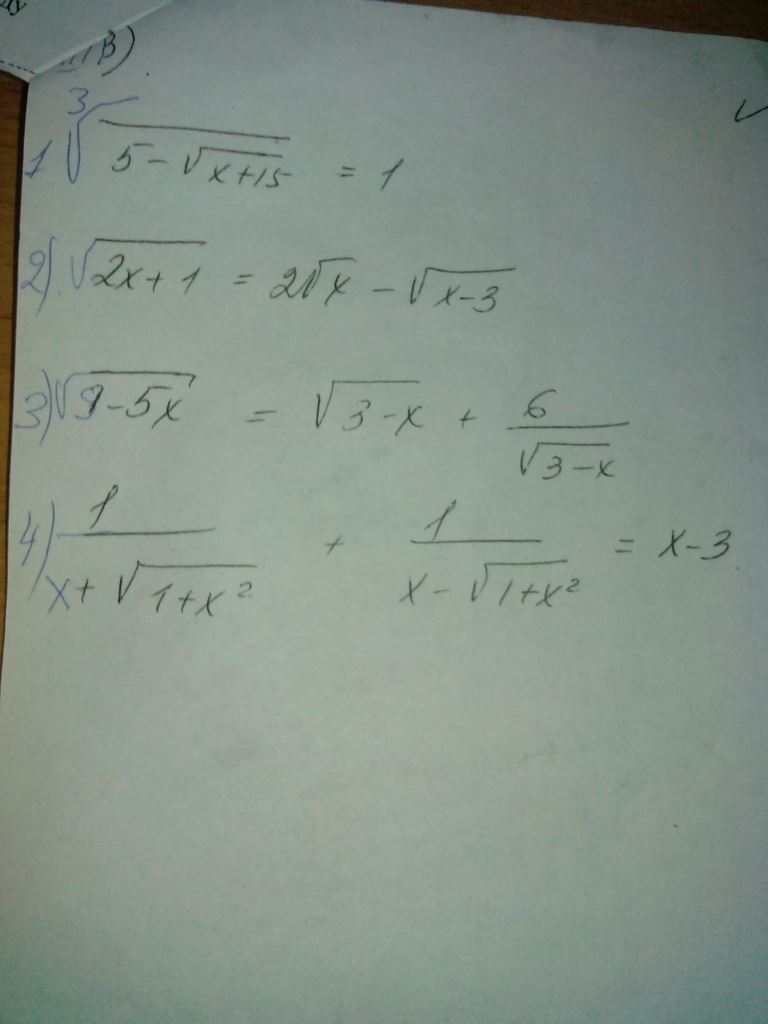 В)
1 ∛(5-√(x+15)) = 1
2). √(2x+1) = 2√x - √(x-3)
3) √(9-5x) = √(3-x) + 6/√(3-x)
4) 1/(x+√(1+x²)) + 1/(x-√(1+x²)) = x-3